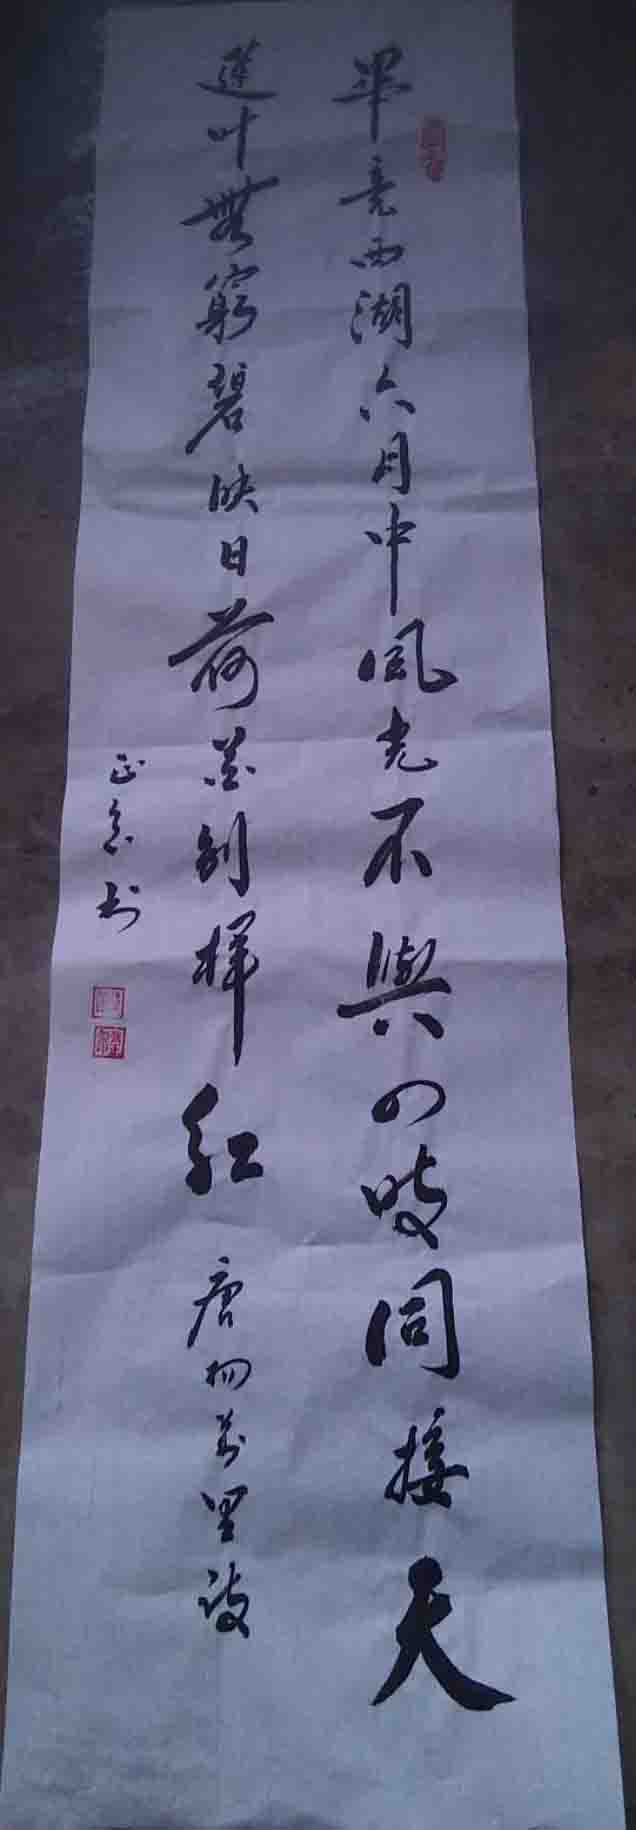 畢竟西湖六月中風光不與四时同接天
蓮叶無窮碧映日荷花别樣红 唐楊萬里诗
正 书